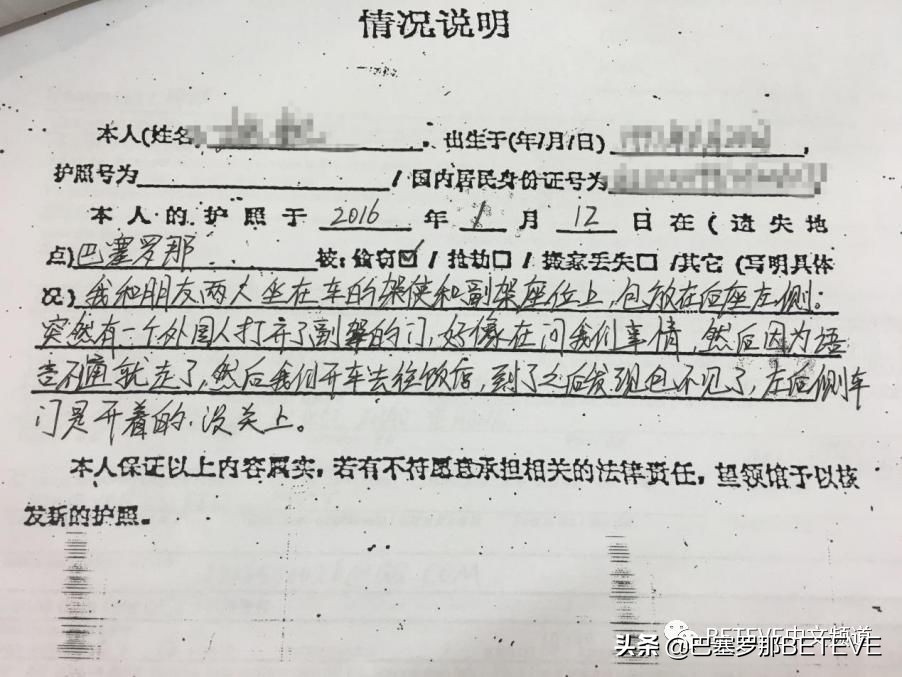 情况说明
本人(姓名 , 出生于(年/月/日) ,
护照号为 / 国内居民身份证号为
本人的护照于 2016 年 1 月 12 日在(遗失地
点)巴塞罗那 被: 偷窃☑ / 抢劫口 / 搬家丢失口 /其它 (写明具体
况) 我和朋友两人坐在车的驾使和副驾座位上,包放在后座左侧;
突然有一个外国人打开了副驾的门,好像在问我们事情,然后因为语
言不通就走了,然后我们开车去往饭店,到了之后发现包不见了,左后侧车
门是开着的.没关上。
本人保证以上内容属实,若有不符愿意承担相关的法律责任,望领馆予以核
发新的护照。
BETEVE中文频道
头条 @巴塞罗那BETEVE